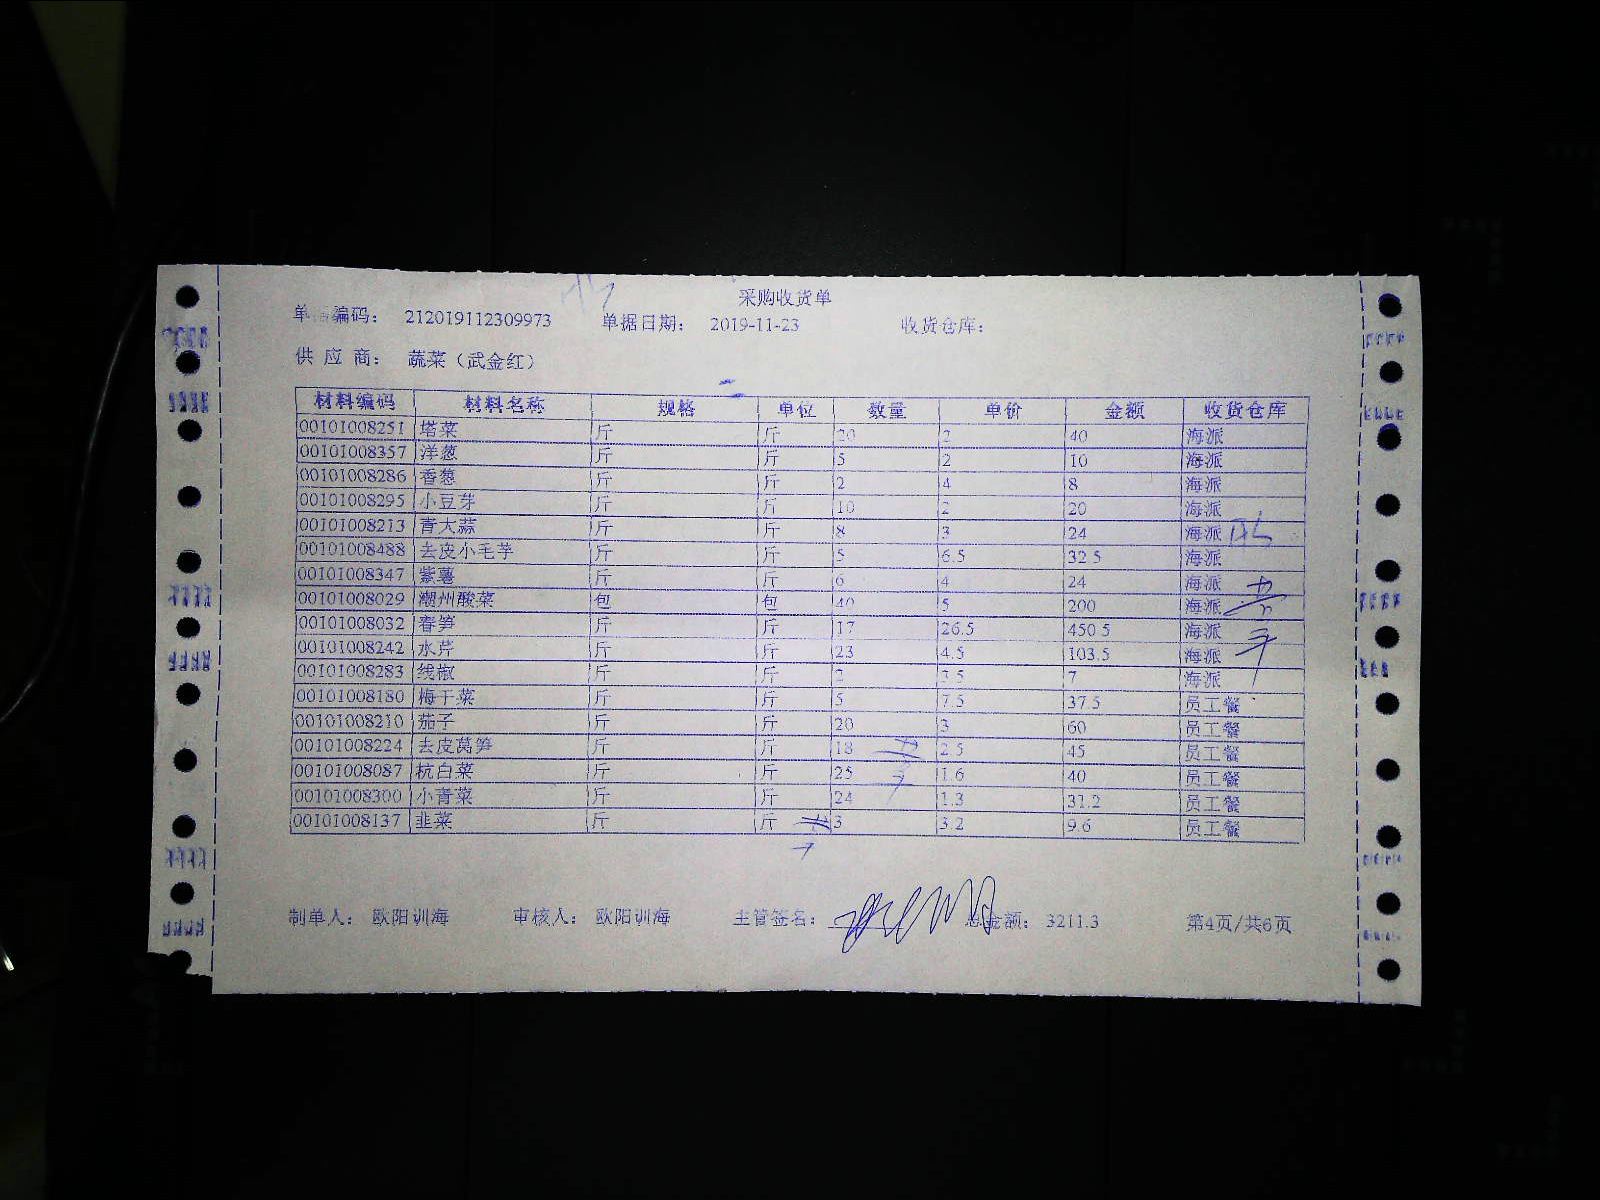 采购收货单
单据编码： 212019112309973 单据日期： 2019-11-23 收货仓库：
供 应 商： 蔬菜（武金红）
材料编码 材料名称 规格 单位 数量 单价 金额 收货仓库
00101008251 塔菜 斤 斤 20 2 40 海派
00101008357 洋葱 斤 斤 5 2 10 海派
00101008286 香葱 斤 斤 2 4 8 海派
00101008295 小豆芽 斤 斤 10 2 20 海派
00101008213 青大蒜 斤 斤 8 3 24 海派
00101008488 去皮小毛芋 斤 斤 5 6.5 32.5 海派
00101008347 紫薯 斤 斤 6 4 24 海派
00101008029 潮州酸菜 包 包 40 5 200 海派
00101008032 春笋 斤 斤 17 26.5 450.5 海派
00101008242 水芹 斤 斤 23 4.5 103.5 海派
00101008283 线椒 斤 斤 2 3.5 7 海派
00101008180 梅干菜 斤 斤 5 7.5 37.5 员工餐
00101008210 茄子 斤 斤 20 3 60 员工餐
00101008224 去皮莴笋 斤 斤 18 2.5 45 员工餐
00101008087 杭白菜 斤 斤 25 1.6 40 员工餐
00101008300 小青菜 斤 斤 24 1.3 31.2 员工餐
00101008137 韭菜 斤 斤 3 3.2 9.6 员工餐
制单人： 欧阳训海 审核人： 欧阳训海 主管签名： 总金额： 3211.3 第4页/共6页